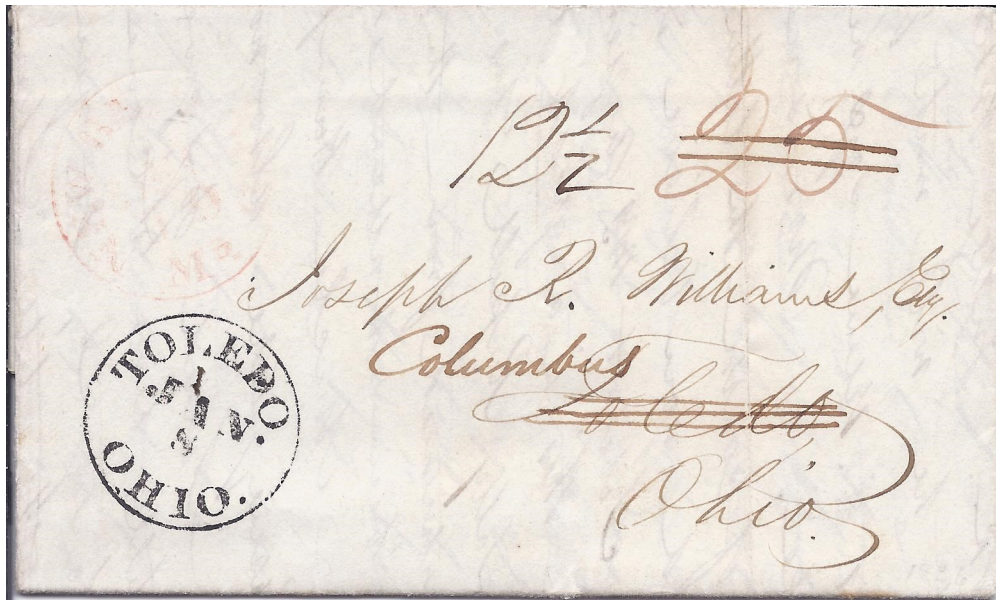 12 1/2 25
Joseph R. Williams, Esq.
Columbus
Toledo,
Ohio.
TOLEDO.
JAN
OHIO.
Ms